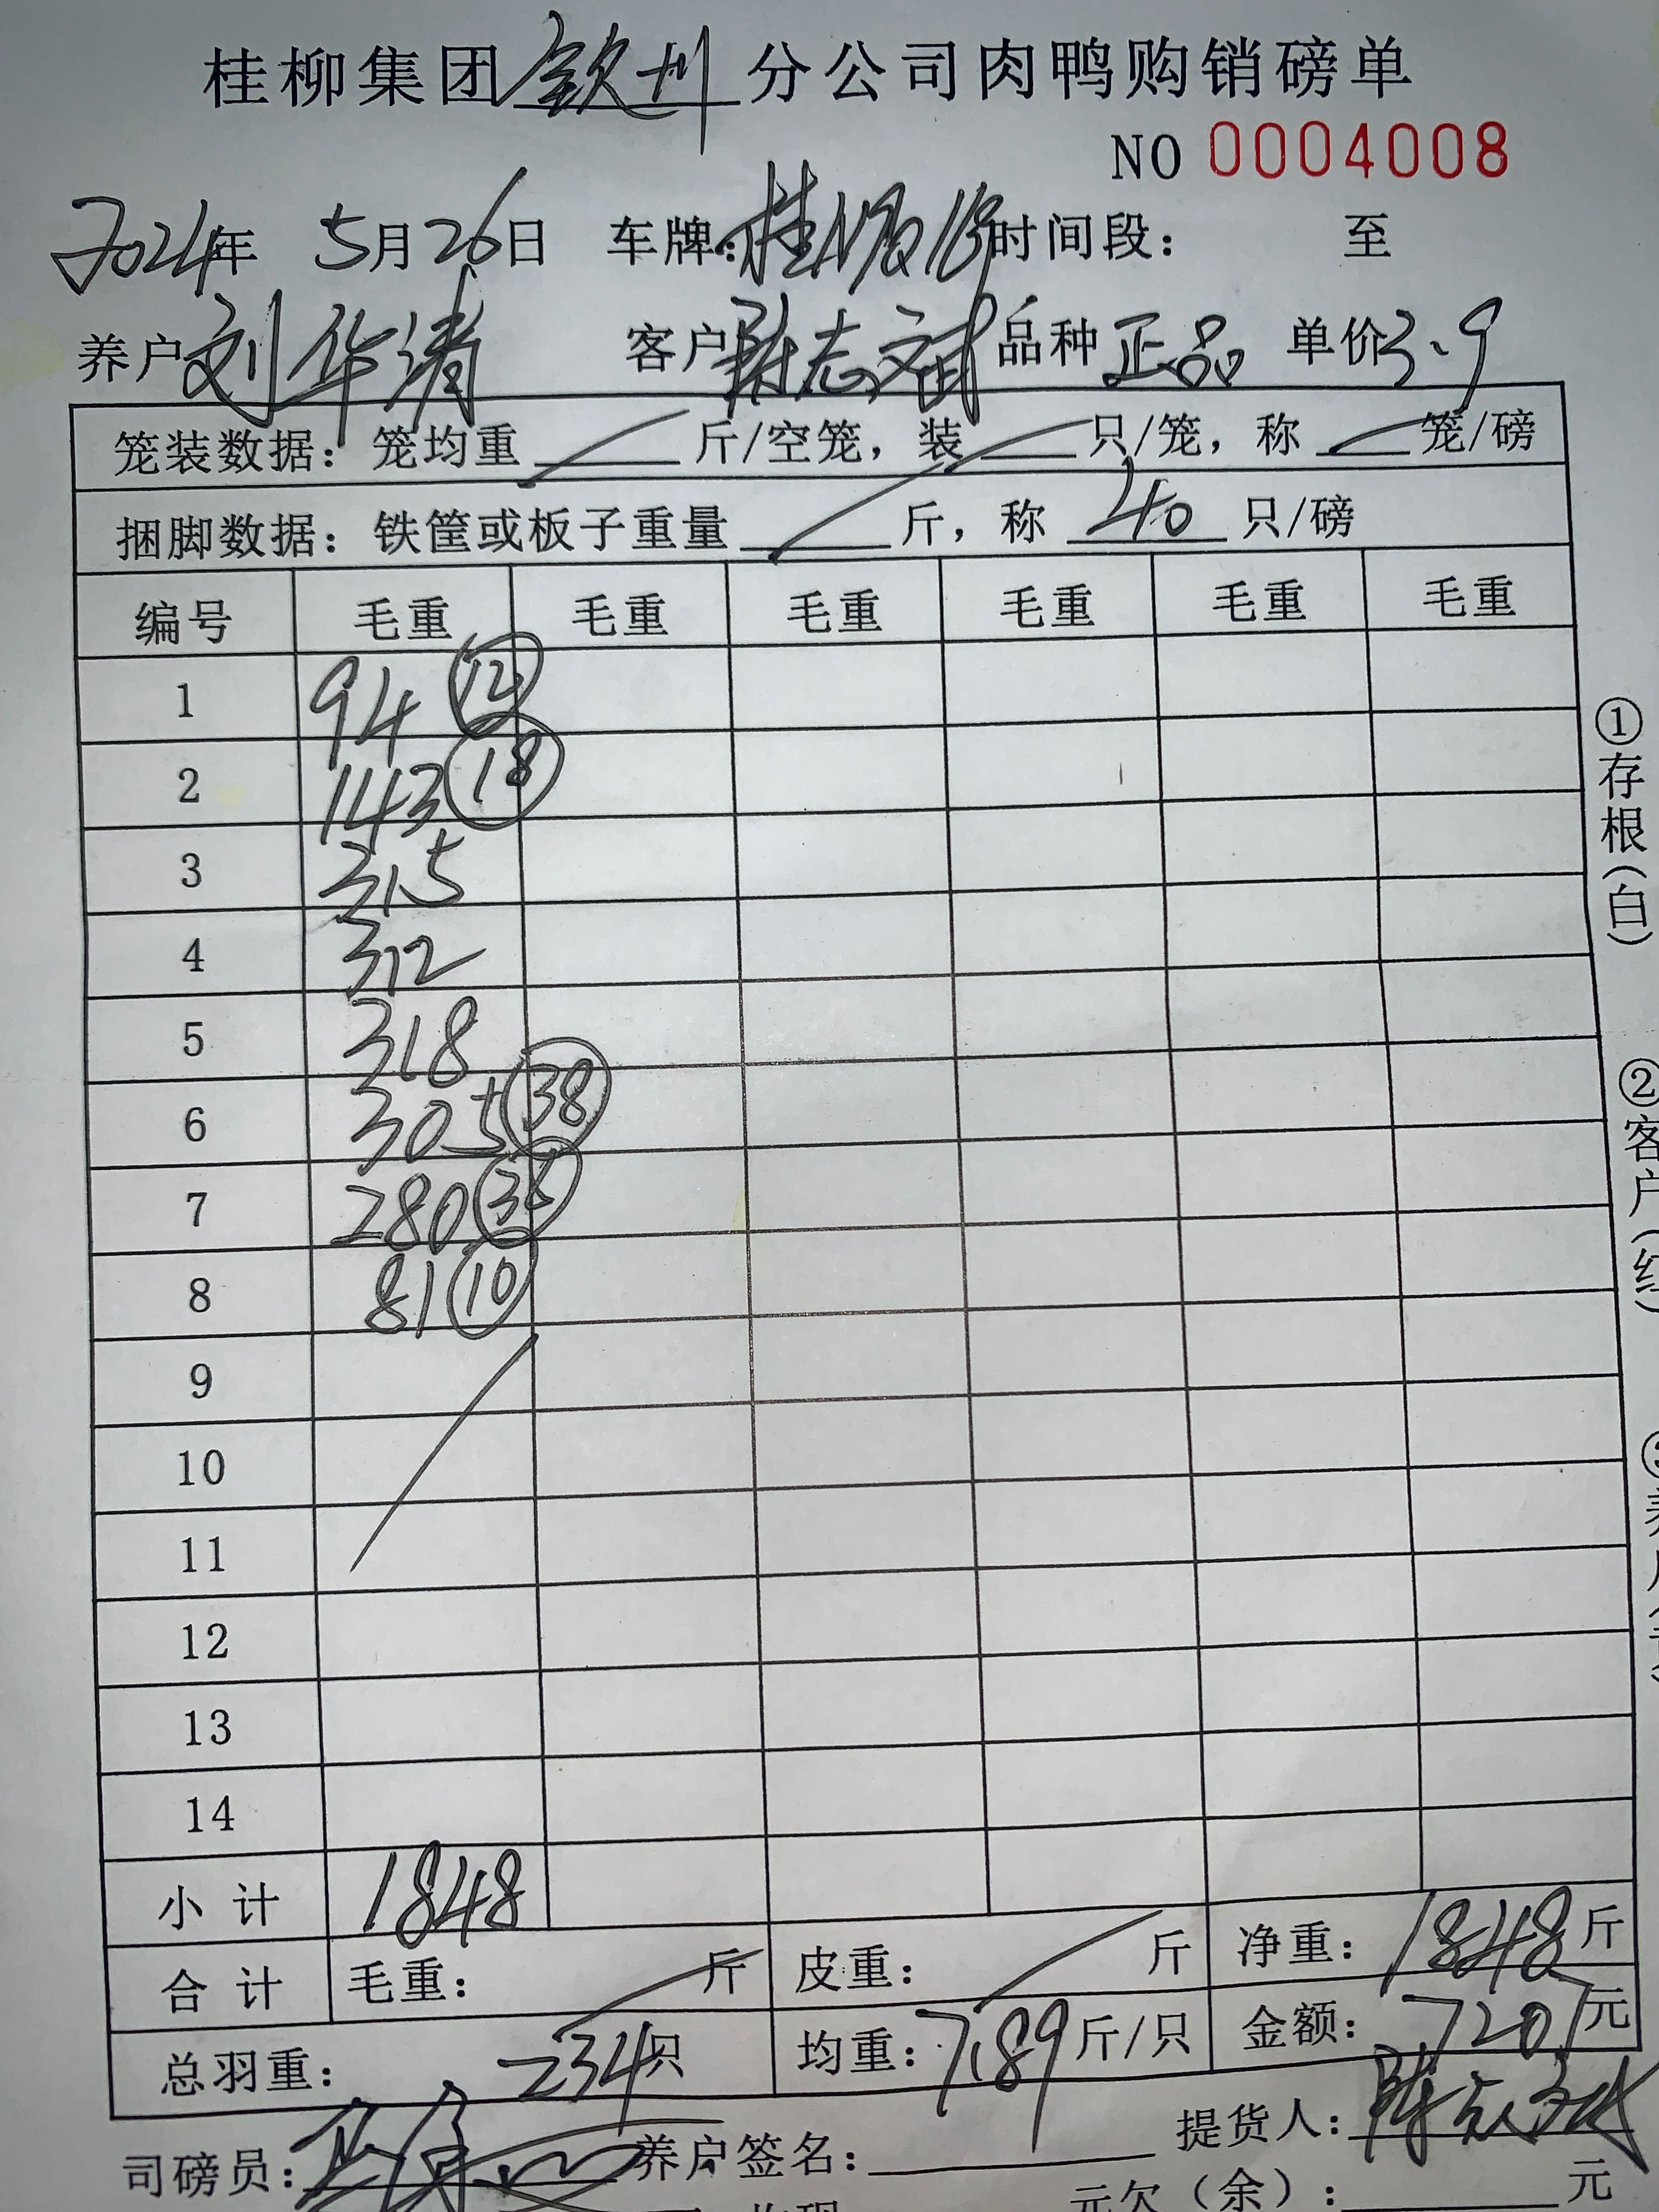 桂柳集团钦州分公司肉鸭购销磅单
NO 0004008
2024年 5月26日 车牌: 时间段: 至
养户刘华清 客户陈志斌 品种正品 单价3.9
笼装数据: 笼均重 斤/空笼, 装 只/笼, 称 笼/磅
捆脚数据: 铁筐或板子重量 斤, 称 40 只/磅
编号 毛重 毛重 毛重 毛重 毛重 毛重
1 94 12
2 143 18
3 315
4 312
5 318
6 305 38
7 280 35
8 81 10
9
10
11
12
13
14
小计 1848
合计 毛重: 斤 皮重: 斤 净重: 1848斤
总羽重: 234只 均重: 7.89斤/只 金额: 7207元
司磅员: 养户签名: 提货人:
元欠(余): 元
①存根(白)
②客户(红)